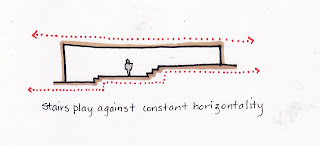 Stairs play against constant horizontality